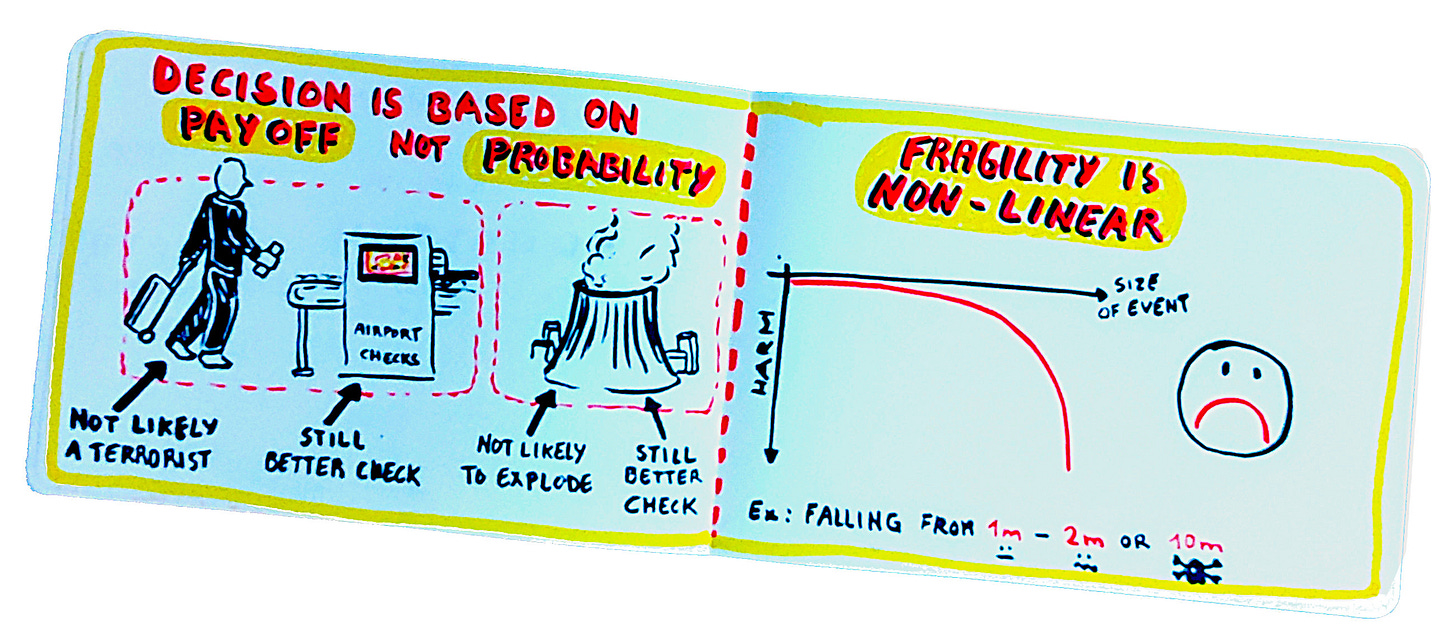 DECISION IS BASED ON
PAYOFF NOT PROBABILITY
AIRPORT
CHECKS
NOT LIKELY
A TERRORIST
STILL
BETTER CHECK
NOT LIKELY
TO EXPLODE
STILL
BETTER
CHECK
FRAGILITY IS
NON-LINEAR
SIZE
OF EVENT
HARM
Ex: FALLING FROM 1m - 2m OR 10m